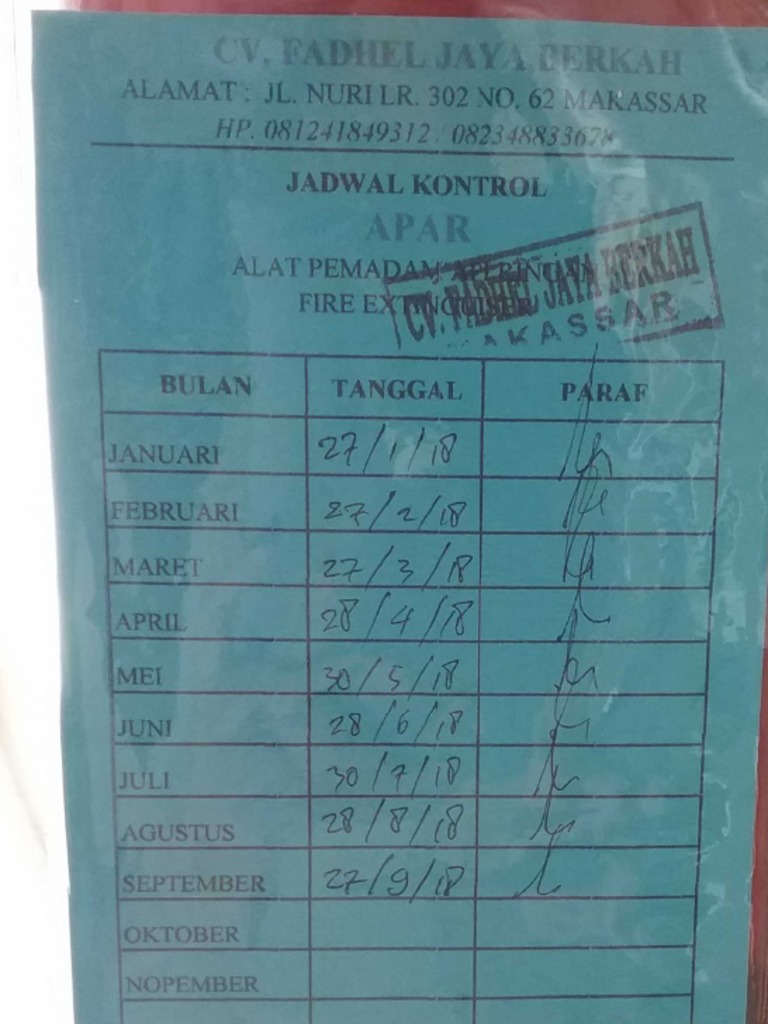 CV. FADHEL JAYA BERKAH
ALAMAT : JL. NURI LR. 302 NO. 62 MAKASSAR
HP. 081241849312 / 082348833678
JADWAL KONTROL
APAR
ALAT PEMADAM API RINGAN
FIRE EXTINGUISER
CV. FADHEL JAYA BERKAH
MAKASSAR
BULAN TANGGAL PARAF
JANUARI 27/1/18
FEBRUARI 27/2/18
MARET 27/3/18
APRIL 28/4/18
MEI 30/5/18
JUNI 28/6/18
JULI 30/7/18
AGUSTUS 28/8/18
SEPTEMBER 27/9/18
OKTOBER
NOPEMBER